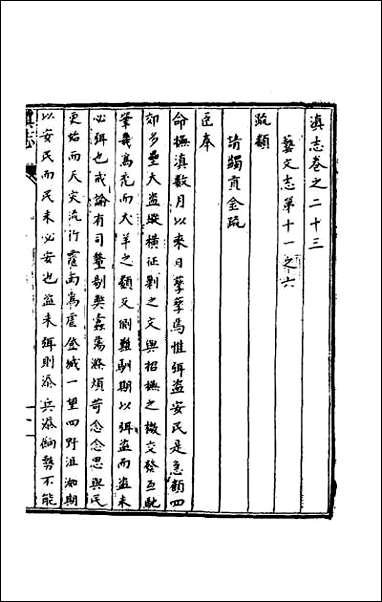 滇志卷之二十三
藝文志第十一之六
疏類
請蠲貢金疏
臣奉
命撫滇數月以來日孳孳焉惟弭盜安民是急顧四
郊多壘大盜縱橫征剿之文與招撫之檄交發互馳
筆幾為禿而犬羊之類又倒難馴期以弭盜而盜未
必弭也戒諭有司釐剔奬蠹蕩滌煩苛念念思與民
更始而天災流行霪雨為虐金城一望四野沮洳期
以安民而民未必安也盜未弭則添兵添餉勢不能
滇志